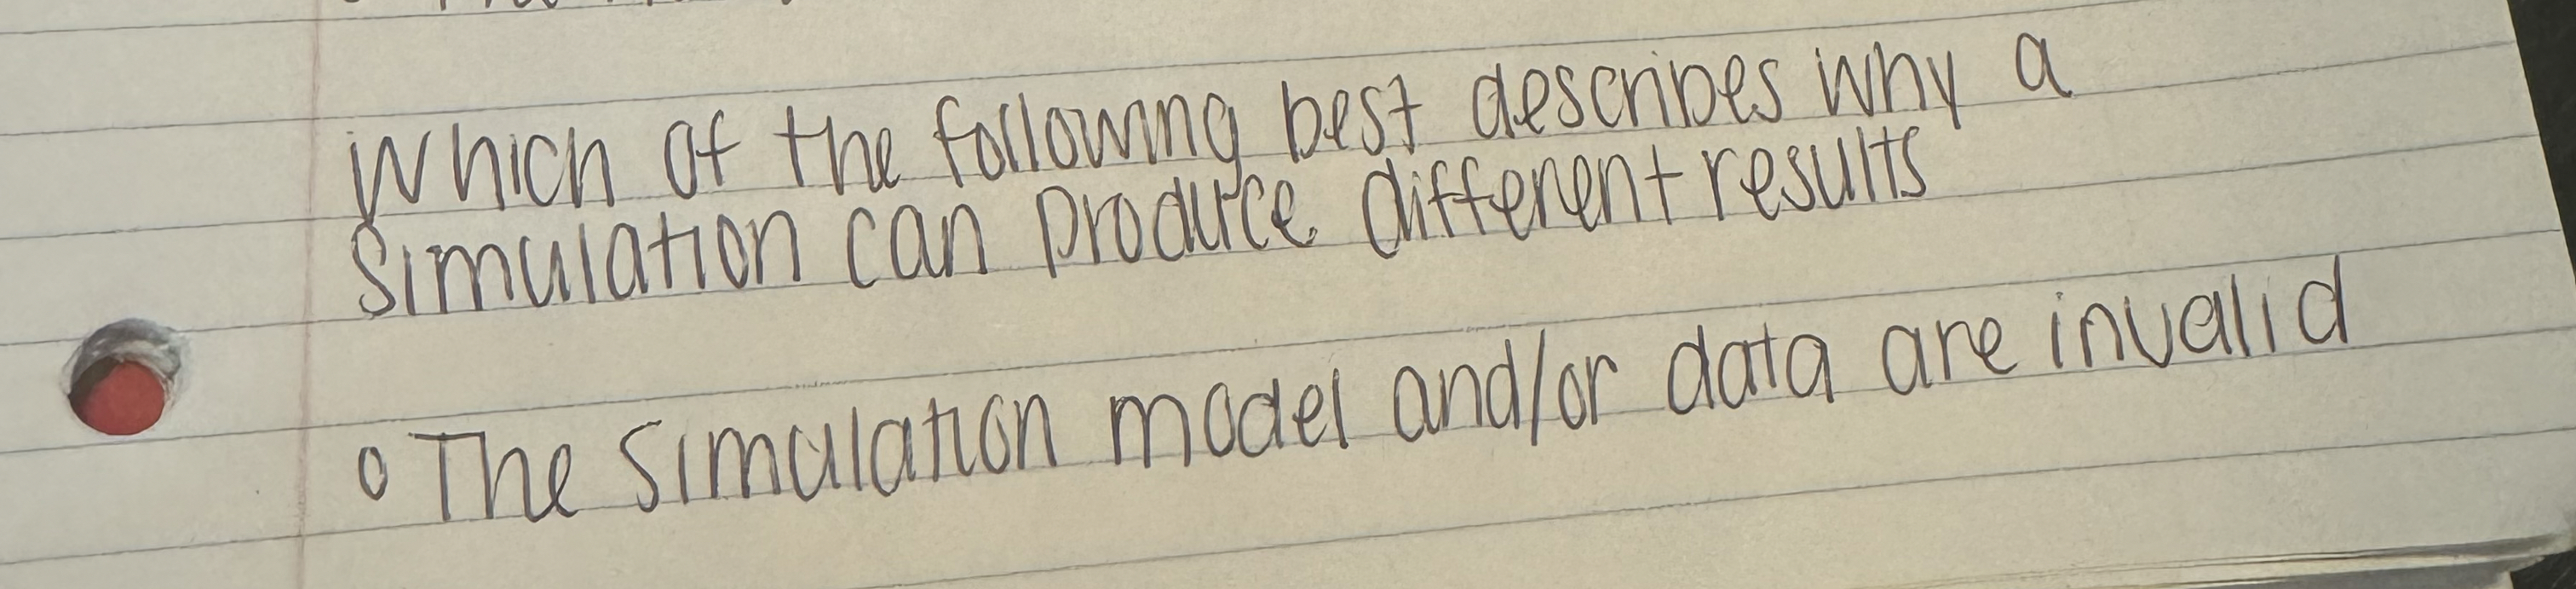 Which of the following best describes why a
simulation can produce different results
o The simulation model and/or data are invalid